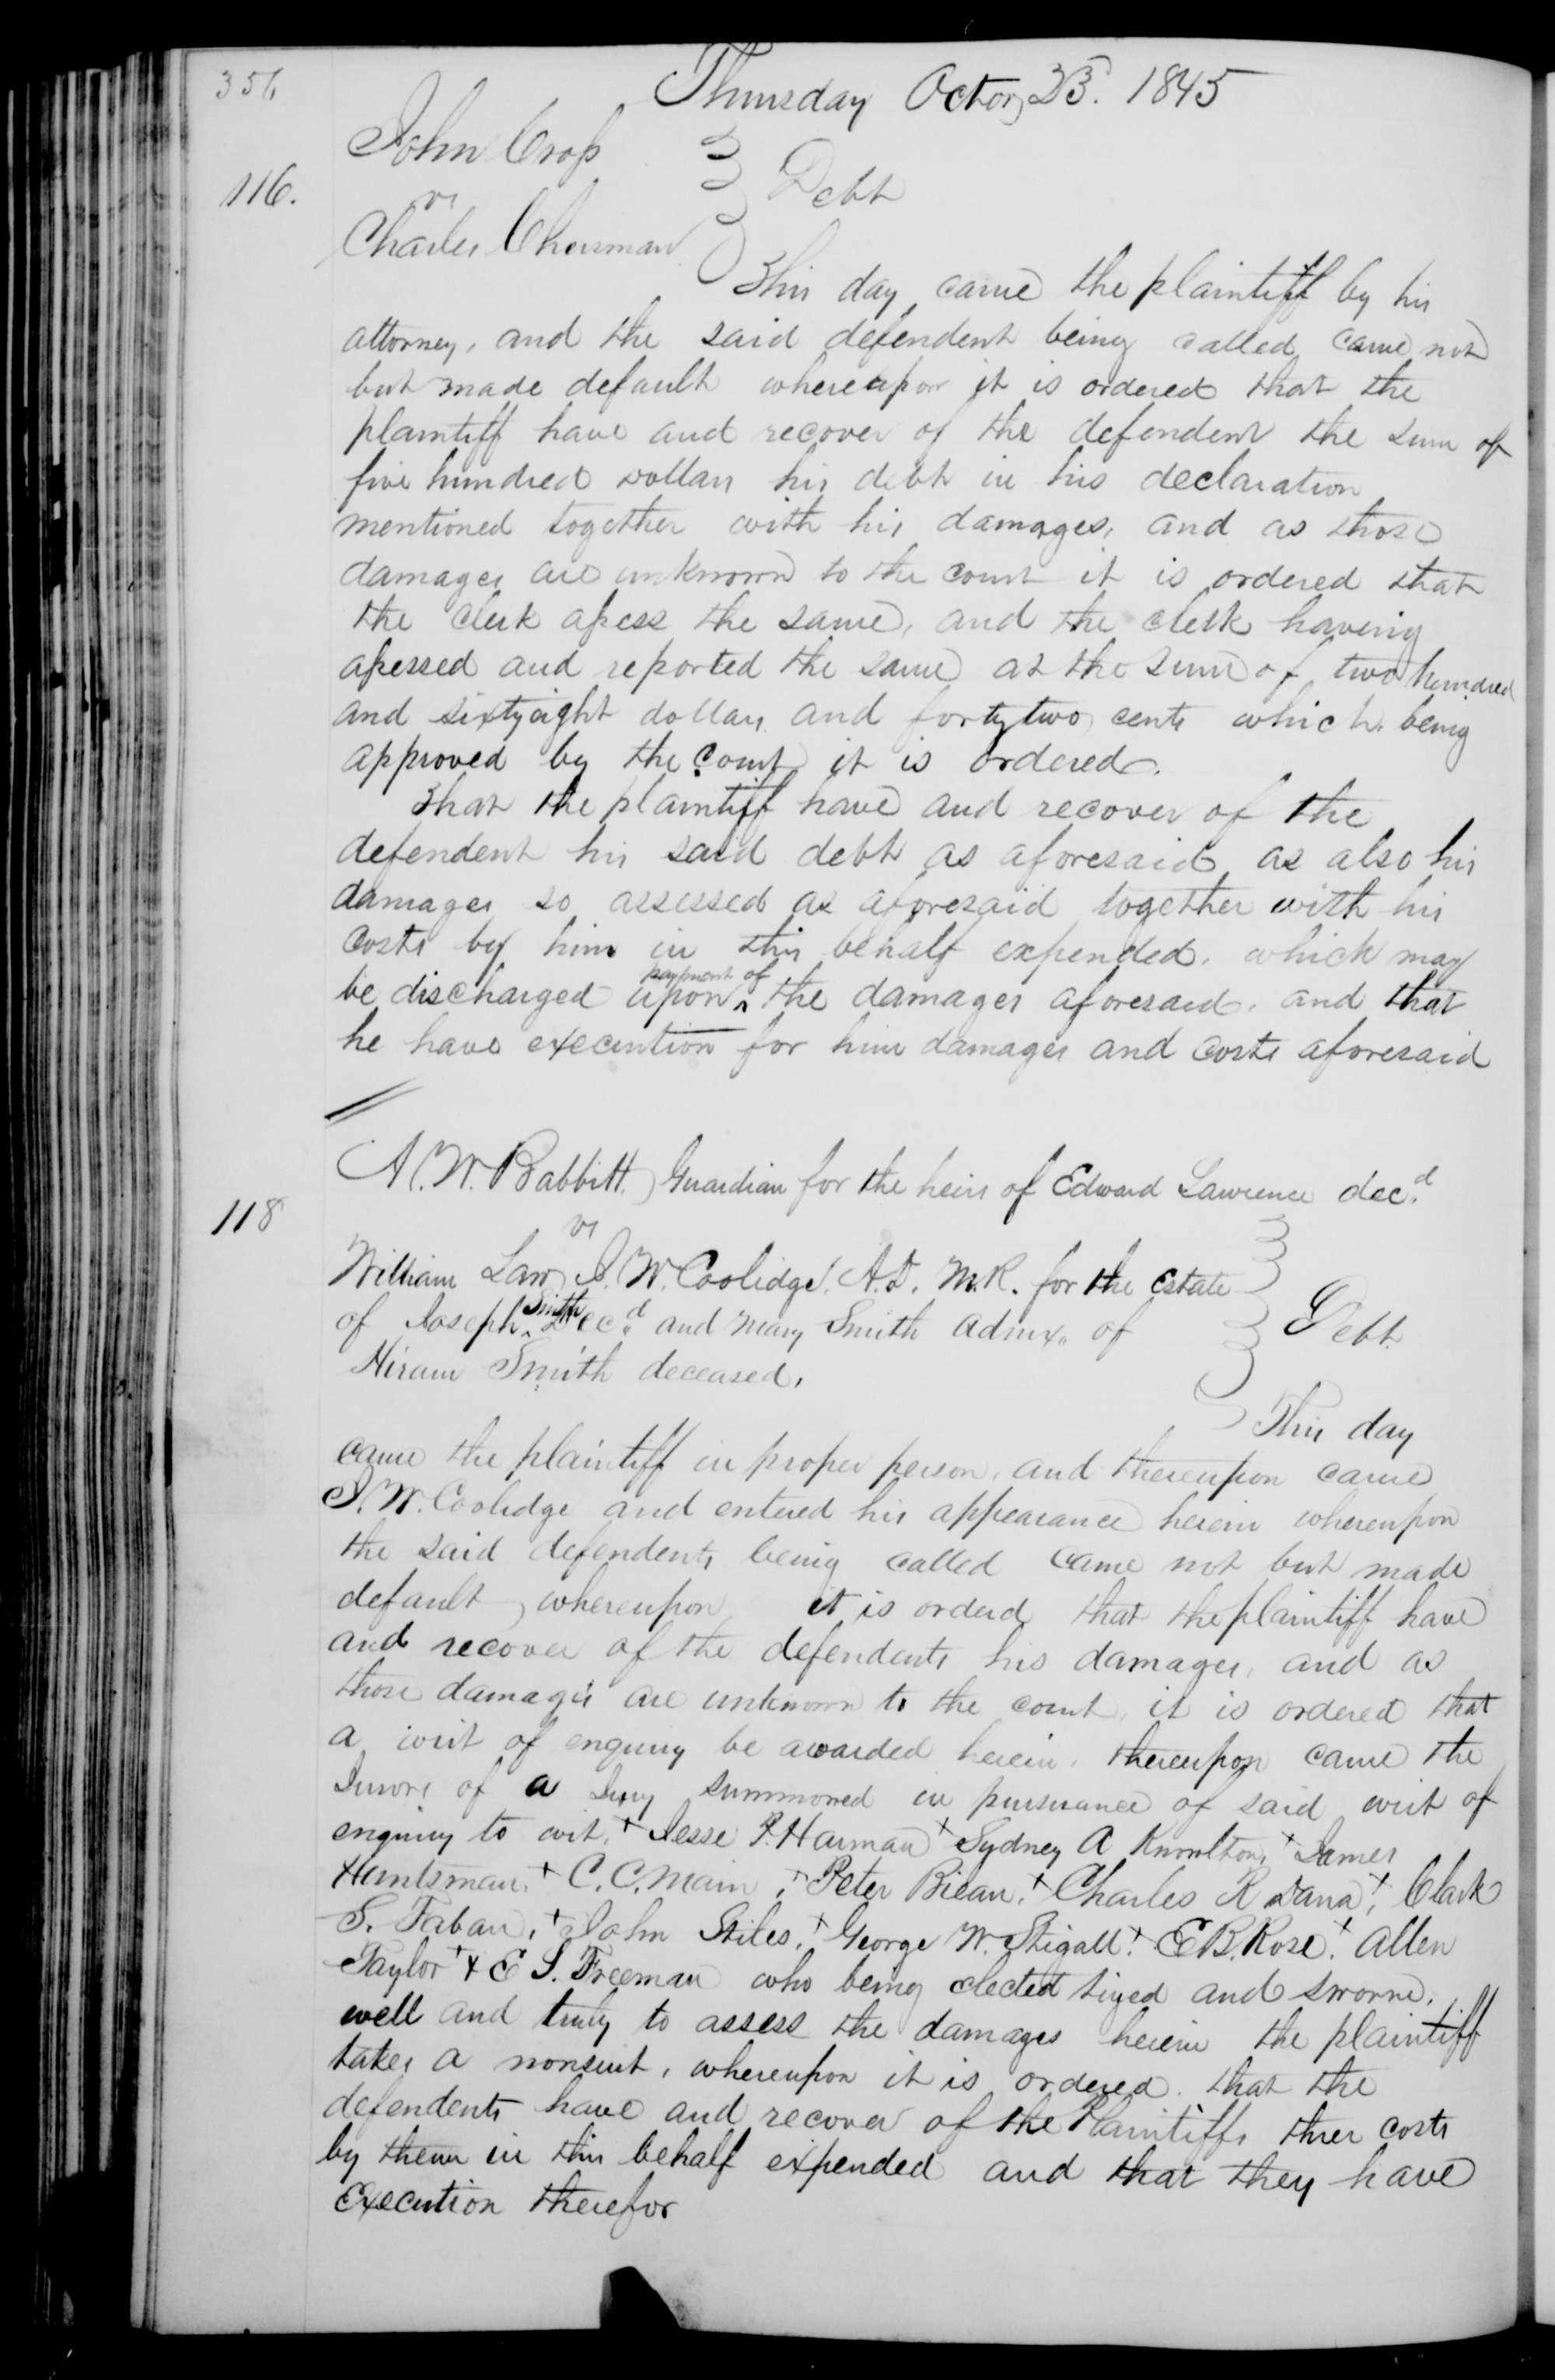 356
Thursday Octor, 23. 1845
John Cross
116.
vs
Debt
Charles Chrisman
This day came the plaintiff by his
attorney, and the said defendent being called came not
but made default whereupon it is ordered that the
plaintiff have and recover of the defendent the sum of
five hundred dollars his debt in his declaration
mentioned together with his damages, and as those
damages are unknown to the court it is ordered that
the clerk assess the same, and the clerk having
assessed and reported the same at the sum of two hundred
and sixtyeight dollars and fortytwo cents which being
approved by the court it is ordered.
That the plaintiff have and recover of the
defendent his said debt as aforesaid as also his
damages so assessed as aforesaid together with his
costs by him in this behalf expended. which may
payment of
be discharged upon ^ the damages aforesaid. and that
he have execution for him damages and costs aforesaid
A. W. Babbitt. Guardian for the heirs of Edward Lawrence decd
118
vs
William Law J. W. Coolidge. A.D. M.R. for the Estate
of Joseph ^ Smith Decd and Mary Smith Admx of
Debt.
Hiram Smith deceased.
This day
came the plaintiff in proper person, and thereupon came
J. W. Coolidge and entered his appearance herein whereupon
the said defendents being called came not but made
default, whereupon it is orderd that the plaintiff have
and recover of the defendents his damages, and as
those damages are unknown to the court, it is ordered that
a writ of enquiry be awarded herein. thereupon came the
Jurors of a Jury summoned in pursuance of said writ of
enquiry to wit. + Jesse P. Harman + Sydney A Knowlton, + James
Huntsman, + C. C. Main, + Peter + Charles R Dana, + Clark
S. Taban, + John Stiles, + George W. Stigall. + E B. Rose. + Allen
Taylor + & E S. Freeman who being elected tryed and sworne.
well and truly to assess the damages herein the plaintiff
takes a nonsuit, whereupon it is ordered. that the
defendents have and recover of the Plaintiffs thier costs
by them in this behalf expended and that they have
Execution therefor